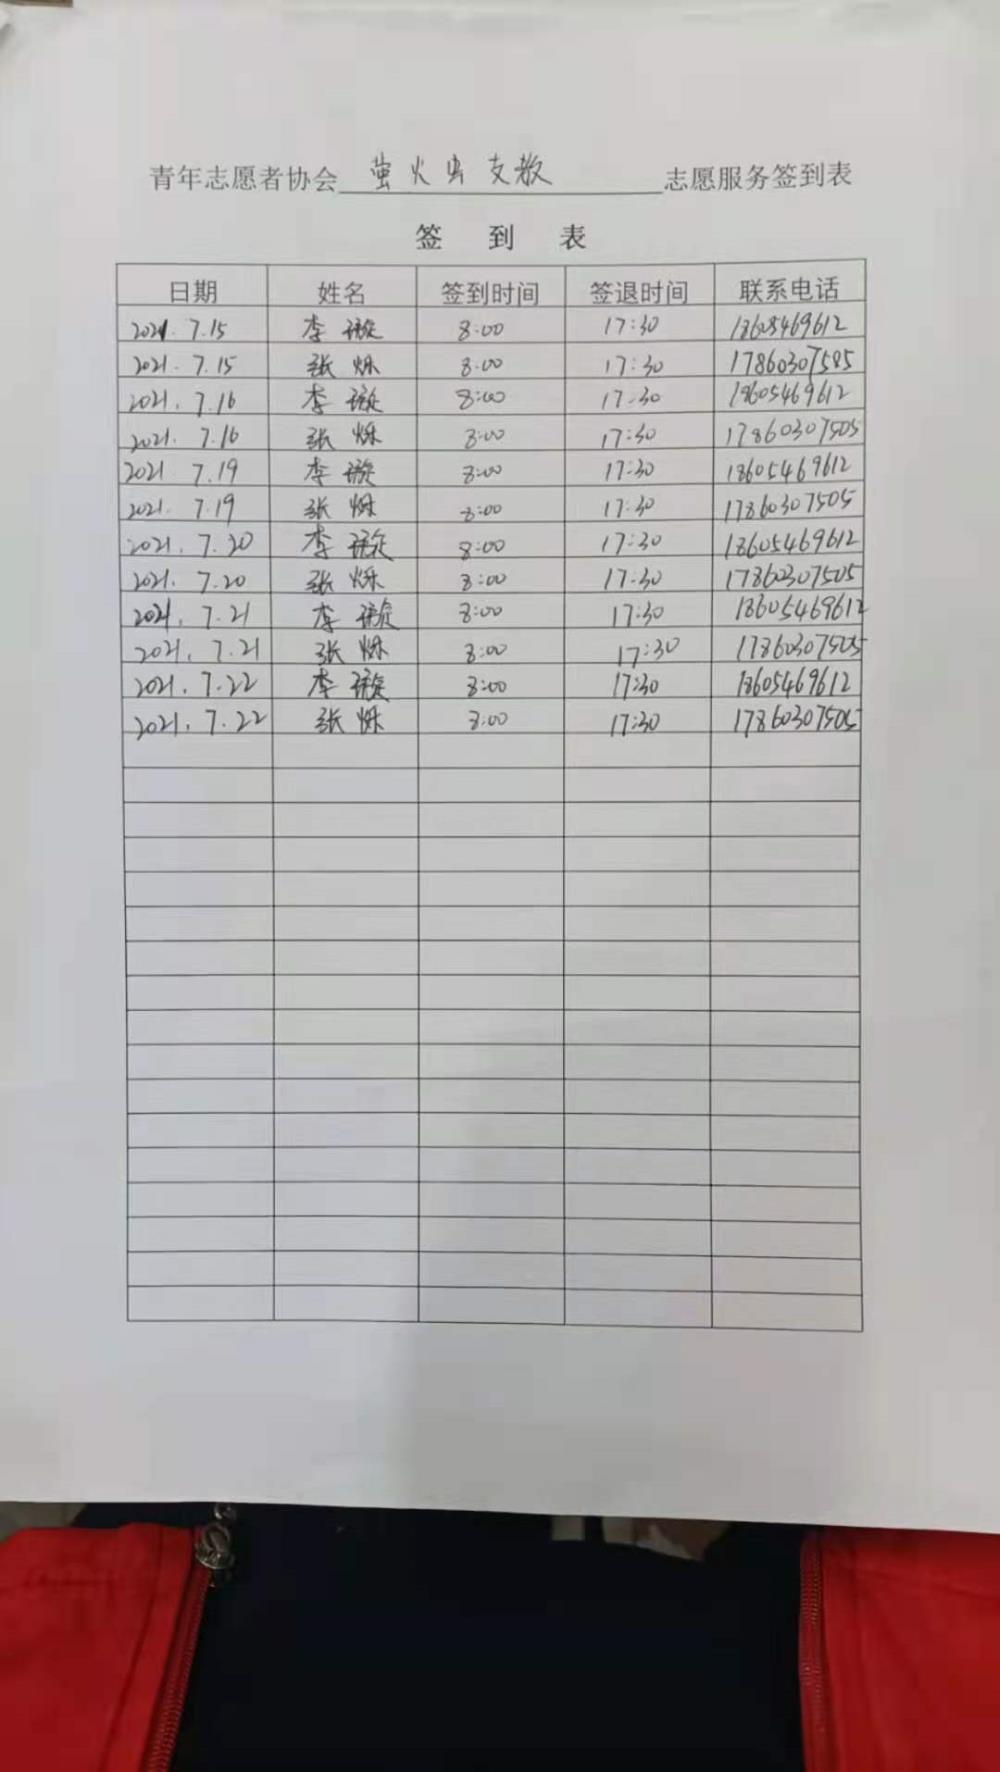 青年志愿者协会 萤火虫支教 志愿服务签到表
签 到 表
日期 姓名 签到时间 签退时间 联系电话
2021.7.15 李璇 8:00 17:30 18605469612
2021.7.15 张烁 8:00 17:30 17860307505
2021.7.16 李璇 8:00 17:30 18605469612
2021.7.16 张烁 8:00 17:30 17860307505
2021.7.19 李璇 8:00 17:30 18605469612
2021.7.19 张烁 8:00 17:30 17860307505
2021.7.20 李璇 8:00 17:30 18605469612
2021.7.20 张烁 8:00 17:30 17860307505
2021.7.21 李璇 8:00 17:30 18605469612
2021.7.21 张烁 8:00 17:30 17860307505
2021.7.22 李璇 8:00 17:30 18605469612
2021.7.22 张烁 8:00 17:30 17860307505